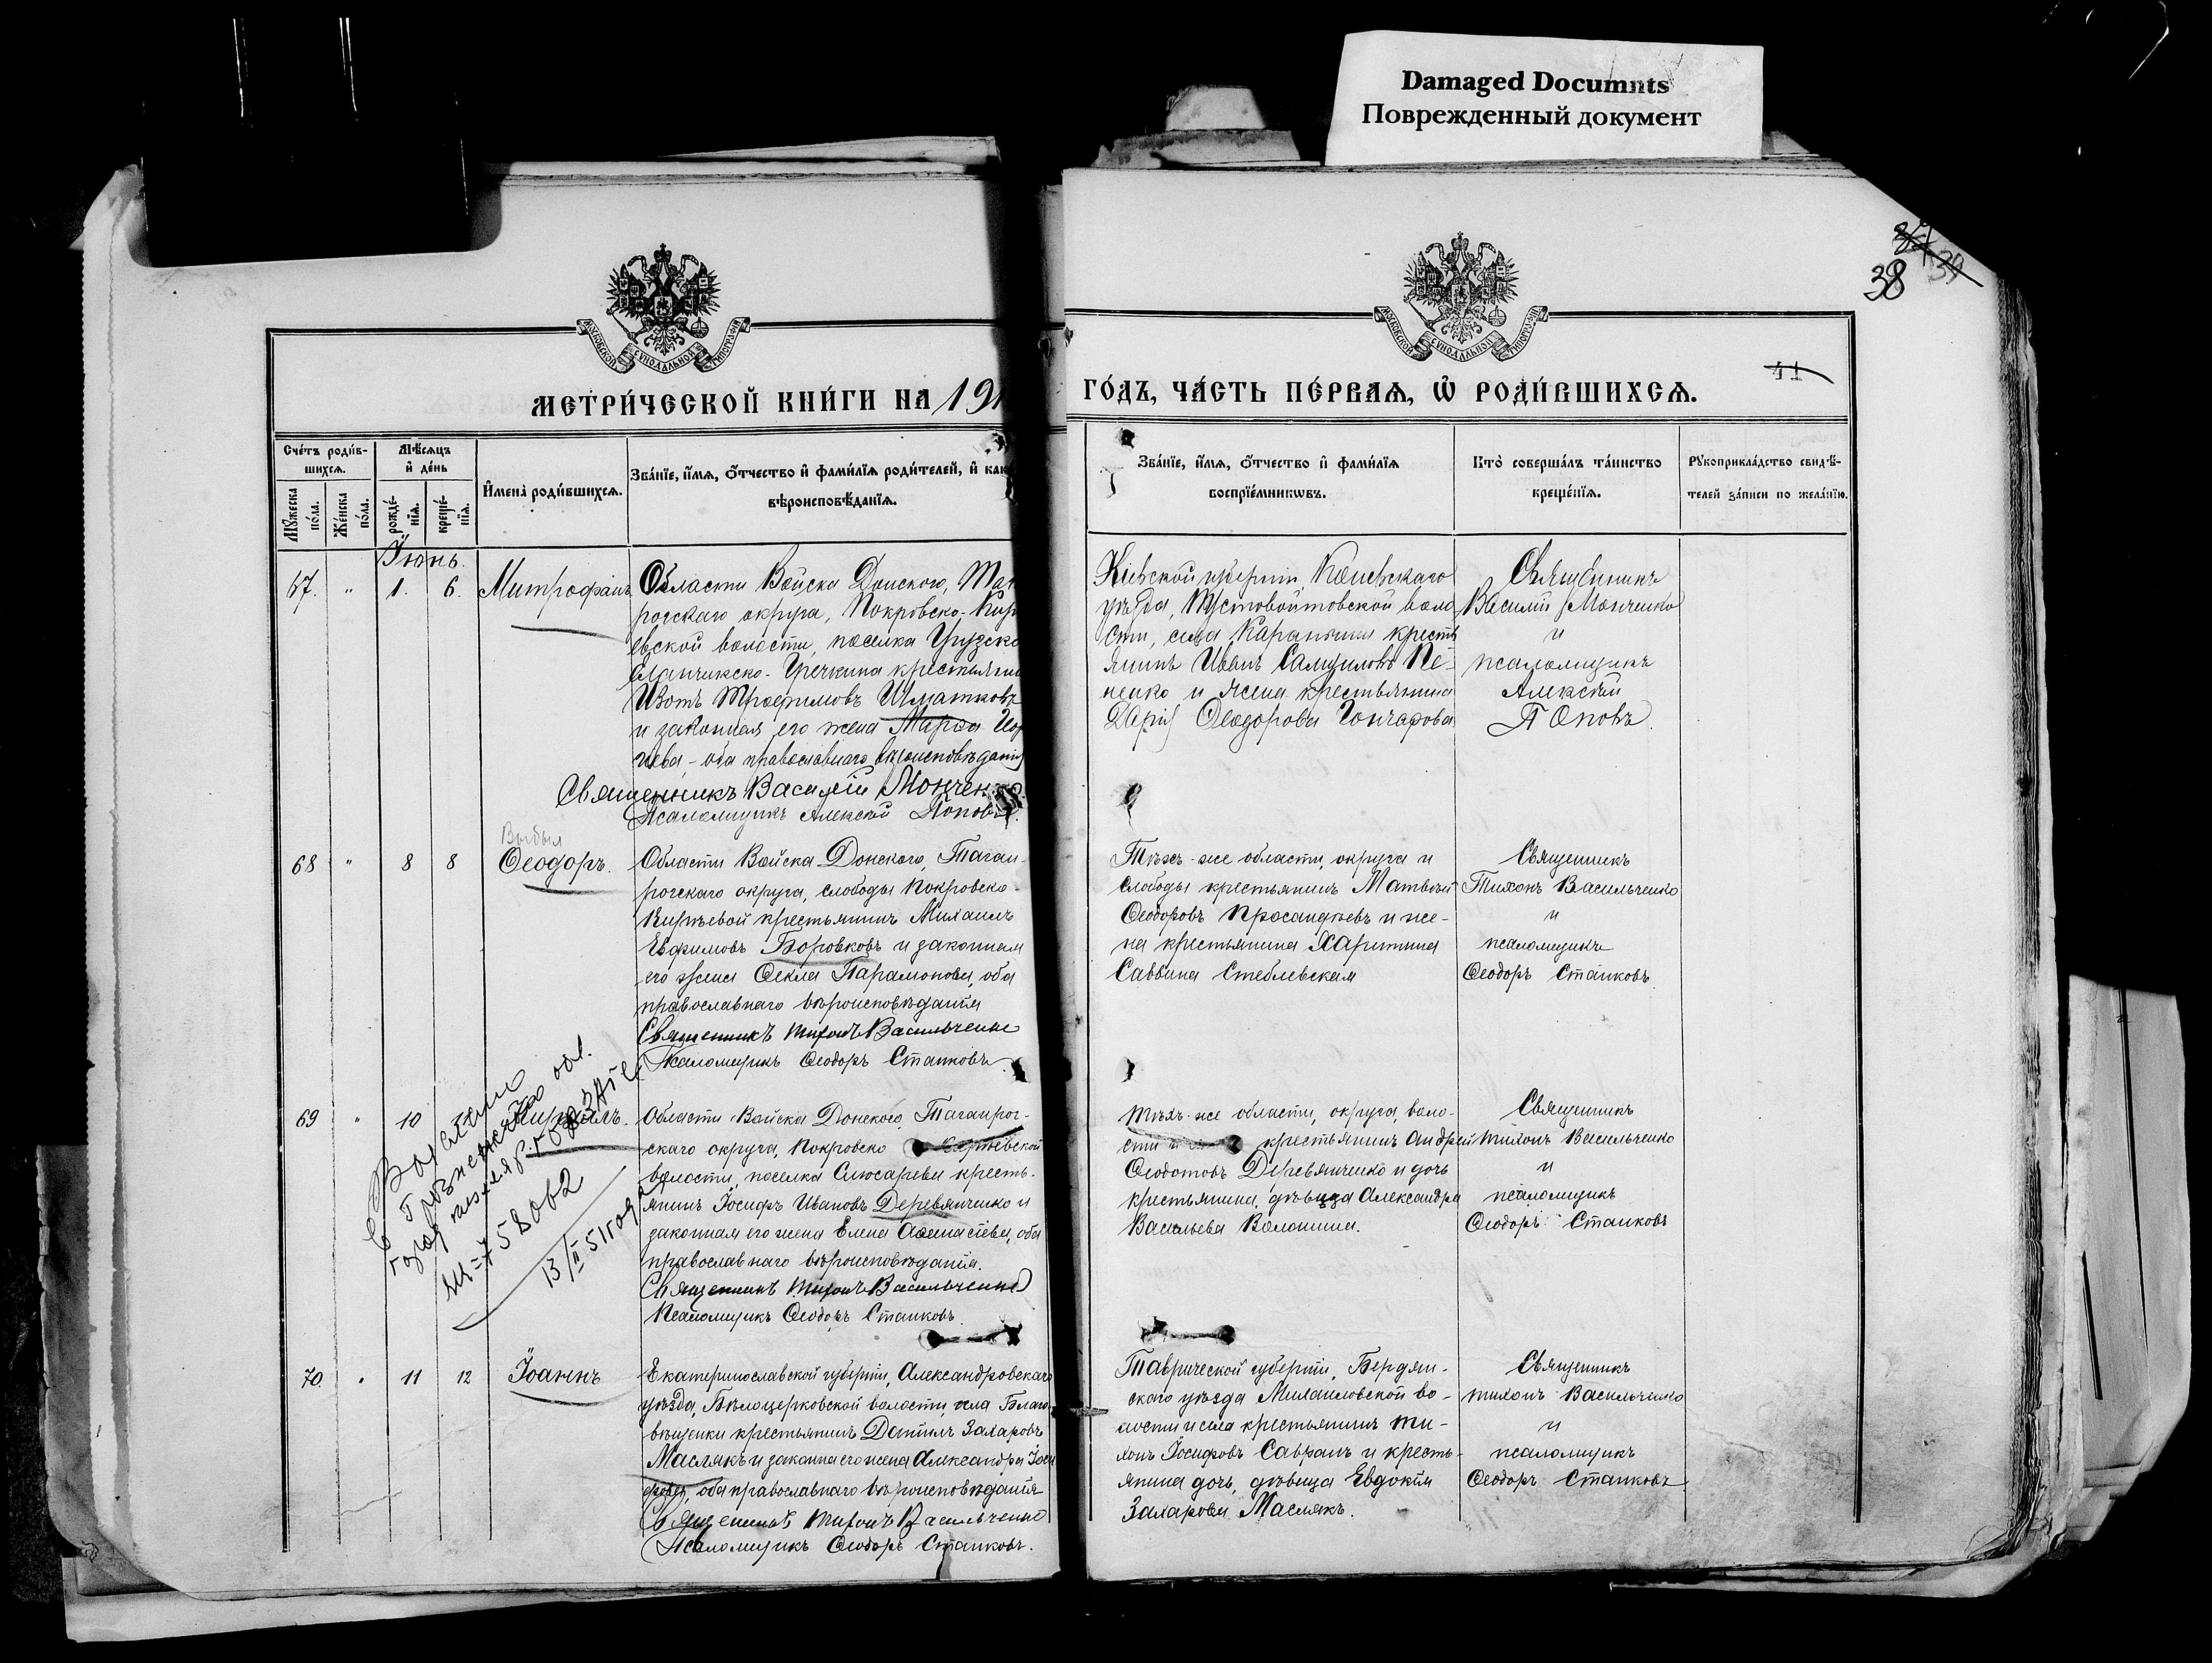 Damaged Documnts
Поврежденный документ
38
41
МОСКОВСКОЙ СУНОДАЛЬНОЙ ТИПОГРАФІИ
МОСКОВСКОЙ СУНОДАЛЬНОЙ ТИПОГРАФІИ
МЕТРИ́ЧЕСКОЙ КНИ́ГИ НА 191
ГО́ДЪ, ЧА́СТЬ ПЕ́РВАЯ, Ѡ РОДИ́ВШИХСЯ.
Сче́тъ роди́в-
шихся.
Мꙋжеска по́ла.
Же́нска по́ла.
Мѣ́сяцъ
и҆ де́нь
рожде́-
нїя.
креще́-
нїя.
И҆мена̀ роди́вшихся.
Зва́нїе, и҆́мя, ѻ҆́тчество и҆ фами́лїя роди́телей, и҆ как
вѣроисповѣ́данїя.
Зва́нїе, и҆́мя, ѻ҆́тчество и҆ фами́лїя
воспрїе́мникѡвъ.
Кто̀ соверша́лъ та́инство
креще́нїя.
Рꙋкоприкла́дство свидѣ́-
телей за́писи по жела́нїю.
Іюнь.
67. " 1. 6. Митрофанъ
Области Войска Донского, Таг
рогскаго округа, Покровско-Кир
евской волости, поселка Грузско
Еланчикско-Гречкина крестьянин
Изотъ Трофимовъ Шматковъ
и законная его жена Марфа Геор
гіева, - оба православнаго вѣроисповѣданія
Священникъ Василій Монченко
Псаломщикъ Алексѣй Поповъ.
Кіевской губерніи, Каневскаго
уѣзда, Пустовойтовской воло
сти, села Карапышъ кресть
янинъ Иванъ Самуиловъ Пе-
ненко и жена крестьянина
Дарія Ѳеодорова Гончарова
Священникъ
Василій Монченко
и
псаломщикъ
Алексѣй
Поповъ.
Выбыл
68 " 8 8 Ѳеодоръ.
Области Войска Донского, Таган-
рогскаго округа, слободы Покровско-
Кирѣевой крестьянинъ Михаилъ
Евфимовъ Боровковъ и законная
его жена Ѳекла Парамонова, оба
православнаго вѣроисповѣданія
Священникъ Тихонъ Васильченко
Псаломщикъ Ѳеодоръ Станковъ
Тѣхъ-же области, округа и
слободы крестьянинъ Матвѣй
Ѳеодоровъ Просандѣевъ и же-
на крестьянина Харитина
Саввина Стеблевская
Священникъ
Тихонъ Васильченко
и
псаломщикъ
Ѳеодоръ Станковъ
69 " 10
Области Войска Донского, Таганрог-
скаго округа, Покровско Кирѣевской
волости, поселка Слюсарева кресть-
янинъ Іосифъ Ивановъ Деревянченко и
законная его жена Елена Аѳанасіева, оба
православнаго вѣроисповѣданія.
Священникъ Тихонъ Васильченко
Псаломщикъ Ѳеодоръ Станковъ.
758062
13/II 51 года
Тѣхъ-же области, округа, воло-
сти и крестьянинъ Андрей
Ѳеодотовъ Деревянченко и дочь
крестьянина, дѣвица Александра
Васильева Волошина.
Священникъ
Тихонъ Васильченко
и
псаломщикъ
Ѳеодоръ Станковъ
70. " 11 12 Іоаннъ
Екатеринославской губерніи, Александровскаго
уѣзда, Бѣлоцерковской волости, села Благо-
вѣщенки крестьянинъ Даніилъ Захаровъ
Маслякъ и законная его жена Александра Іоси
фова, оба православнаго вѣроисповѣданія
Священникъ Тихонъ Васильченко
Псаломщикъ Ѳеодоръ Станковъ.
Таврической губерніи, Бердян-
скаго уѣзда Михайловской во-
лости и села крестьянинъ Ти-
хонъ Іосифовъ Савранъ и кресть-
янина дочь, дѣвица Евдокія
Захарова Маслякъ.
Священникъ
Тихонъ Васильченко
и
псаломщикъ
Ѳеодоръ Станковъ